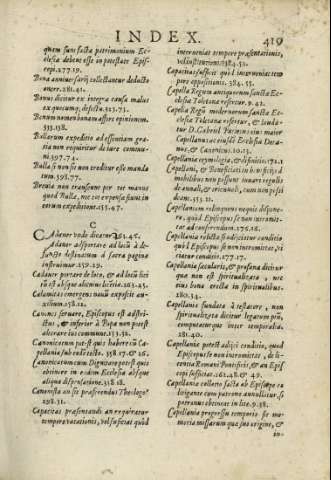 INDEX.
419
quem sunt facta patrimonium Ec-
clesia debent esse in potestate Epis-
copi.277.19.
Bona anniuersarij collectantur deducto
onere.281.41.
Bonus dicitur ex integra causa malus
ex quocumq; defectu.523.71.
Bonum nomen bonam affert opinionem.
533.138.
Bullarum expeditio ad essentiam gra-
tia non requiritur de iure commu-
ni.597.74.
Bulla si non sit non creditur esse manda
tum.598.77.
Breuia non transeunt per tot manus
quod Bulla, nec tot expensa sunt in
eorum expeditione.455.67.
C
Cadauer unde dicatur.263.45.
Cadauer asportare ad locū à de-
functo destinatum à sacra pagina
instruimur.259.29.
Cadauer portare de loco, & ad locū lici
tū est absque alicuius licētia.263.45.
Calamitas emergens nouū expossit au-
xilium.258.12.
Canones seruare, Episcopus est adstri-
ctus, & inferior à Papa non potest
alterare ius commune.153.52.
Canonicorum potest quis habere cū Ca-
pellania sub eodē tecto. 358.17. & 26.
Canonicatum cum Dignitate potest quis
obtinere in eadem Ecclesia absque
aliqua dispensatione.358.18.
Canonista an sit praeferendus Theologo
298.31.
Capacitas praesentandi an requiratur
tempore vacationis, vel suficiat quòd
interueniat tempore praesentationis,
vel institutionis.384.52.
Capacitas suficit quòd interueniat tem
pore oppositionis. 384.55.
Capella Regũ antiquorum sancta Ec-
clesia Toletana refertur. 9.42.
Capella Regũ modernorum sancta Ec-
clesia Toletana refertur, & lauda-
tur D. Gabriel
Capellanus ac eiusdē Ecclesia Deca-
nus, & Canonicus.10.43.
Capellania etymologia, & difinitio.172.1
Capellani, & Beneficiati in bonis sibi
mobilibus non possunt iuuare regulis
de annali, & triennali, cum non possi
deant.353.22.
Capellaniam relinquens nequit dispone-
re, quòd Episcopus se non intromit-
tat ad conferendum.176.18.
Capellania relicta sub dicitur conditio
què Episcopus se non intromittat, vi
ciatur conditio.177.17.
Capellania secularis, & profana dicitur
qua non est spiritualizata, nec
eius bona erecta in spiritualibus.
180.34.
Capellania fundata à testatore, non
spiritualizata dicitur legatum piũ,
computatur que inter temporalia.
181.40.
Capellania potest adijci conditio, quod
Episcopus se non intromittat, de li-
centia Romani Pontificis, & an Epis
copi suficiat.262.48. & 49.
Capellania collatio facta ab Episcopo ex
litigante cum patrono annullitur, si
patronus obtineat in lite.9.58.
Capellania progressu temporis fit me-
moria missarum qua sua origine, &
in-